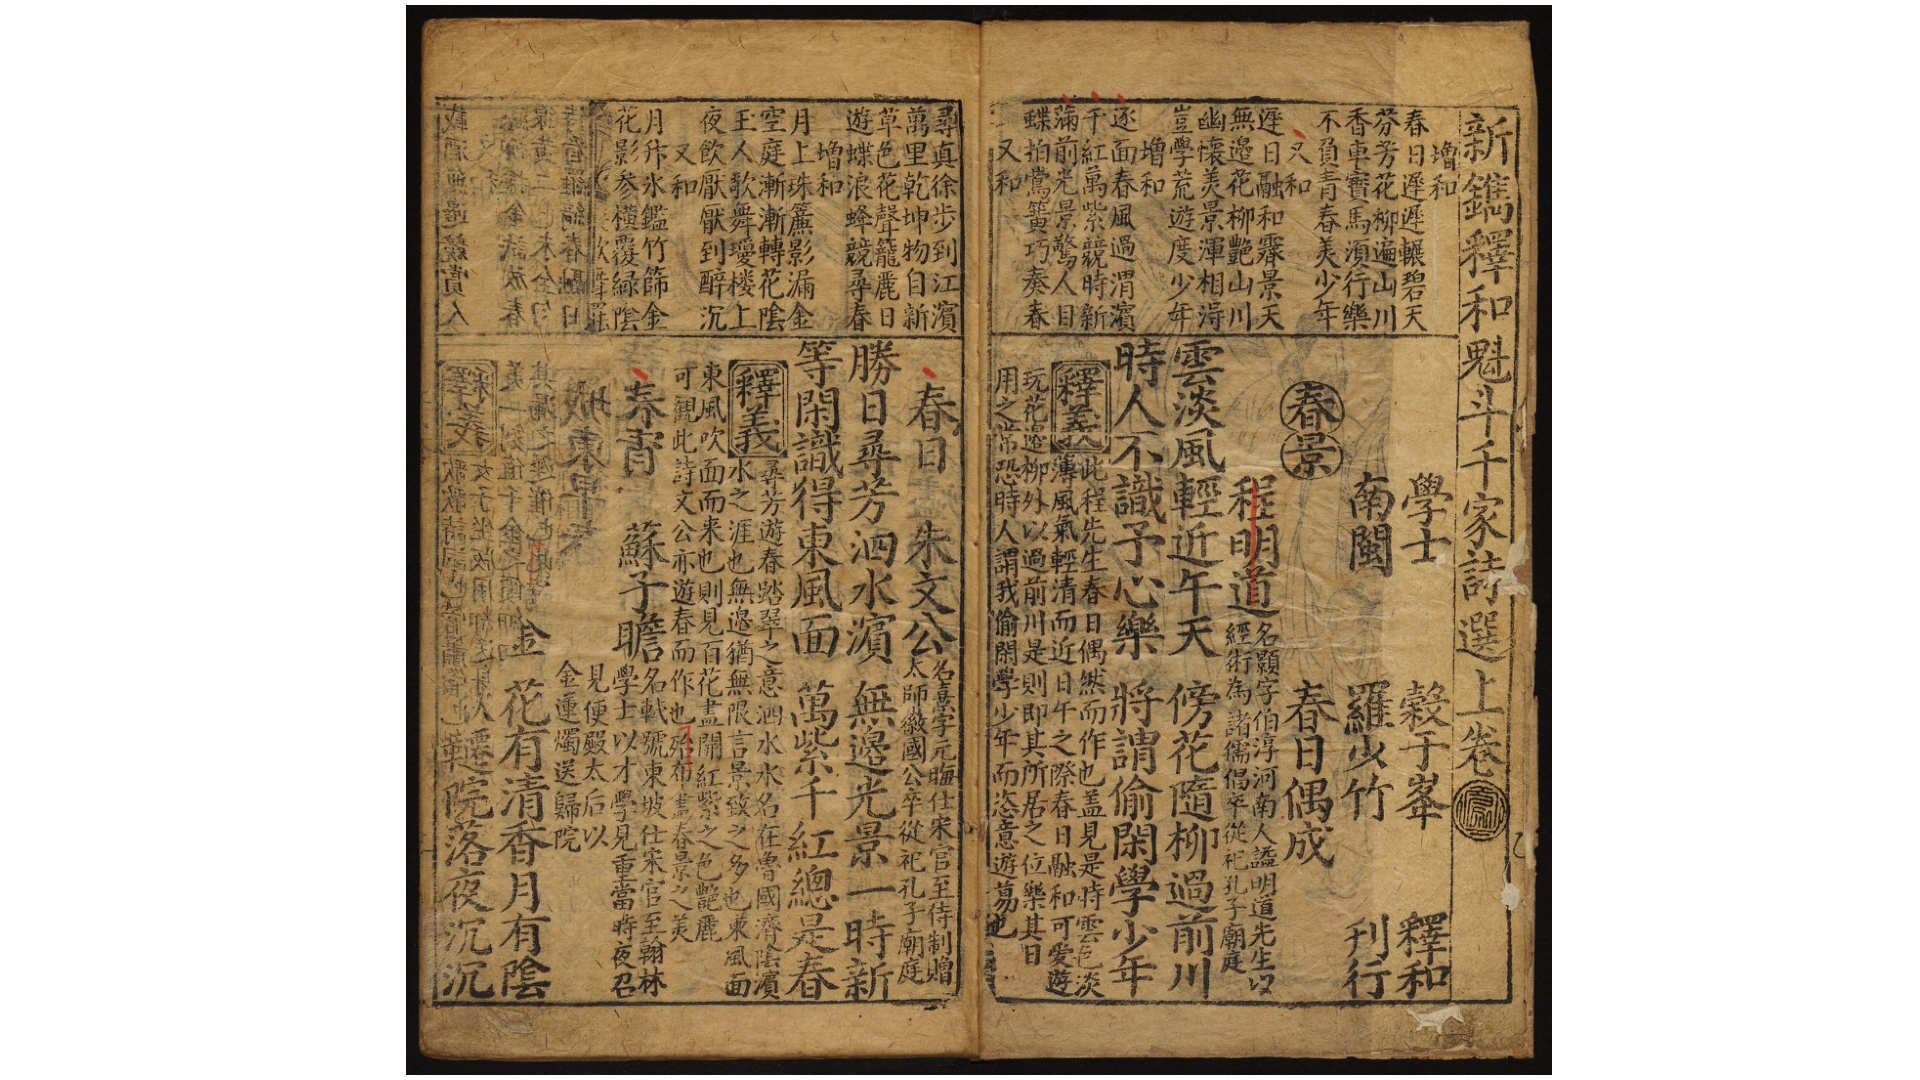 新鐫釋和魁斗千家詩選上卷
增和
春日遲遲輾碧天
芬芳花柳遍山川
香車寶馬須行樂
不負青春美少年
又和
遲日融和霽景天
無邊花柳艷山川
幽懷羙景渾相淂
豈學荒遊度少年
增和
逐面春風過渭濱
千紅萬紫競時新
滿前光景驚人目
蝶拍鶯簧巧奏春
又和
學士 榖于峯 釋和
南閩 羅少竹 刊行
春景 春日偶成
程明道 名顥字伯淳河南人謚明道先生以
經術為諸儒倡卒從祀孔子廟庭
雲淡風輕近午天 傍花隨柳過前川
時人不識予心樂 將謂偷閑學少年
釋義 此程先生春日偶然而作也盖見是時雲色淡
薄風氣輕清而近日午之際春日融和可愛遊
玩花邊柳外以過前川是則即其所居之位樂其日
用之常恐時人謂我偷閑學少年而恣意遊蕩也
尋真徐步到江濱
萬里乾坤物自新
草色花聲籠麗日
遊蝶浪蜂競尋春
增和
月上珠簾影漏金
空庭漸漸轉花陰
王人歌舞瓊楼上
夜飲厭厭到醉沉
又和
月升氷鑑竹篩金
花影參橫覆緑陰
春日 朱文公 名熹字元晦仕宋官至侍制贈
太師徽國公卒從祀孔子廟庭
勝日尋芳泗水濱 無邊光景一時新
等閑識得東風面 萬紫千紅總是春
釋義 尋芳遊春踏翠之意泗水水名在魯國濟陰濱
水之涯也無邊猶無限言景致之多也東風面
東風吹面而来也則見百花盡開紅紫之色艷麗
可觀此詩文公亦遊春而作也 布盡春景之美
春宵 蘇子瞻 名軾號東坡仕宋官至翰林
學士以才學見重當時夜召
見便殿太后以
金蓮燭送歸院
金 花有清香月有陰
院落夜沉沉